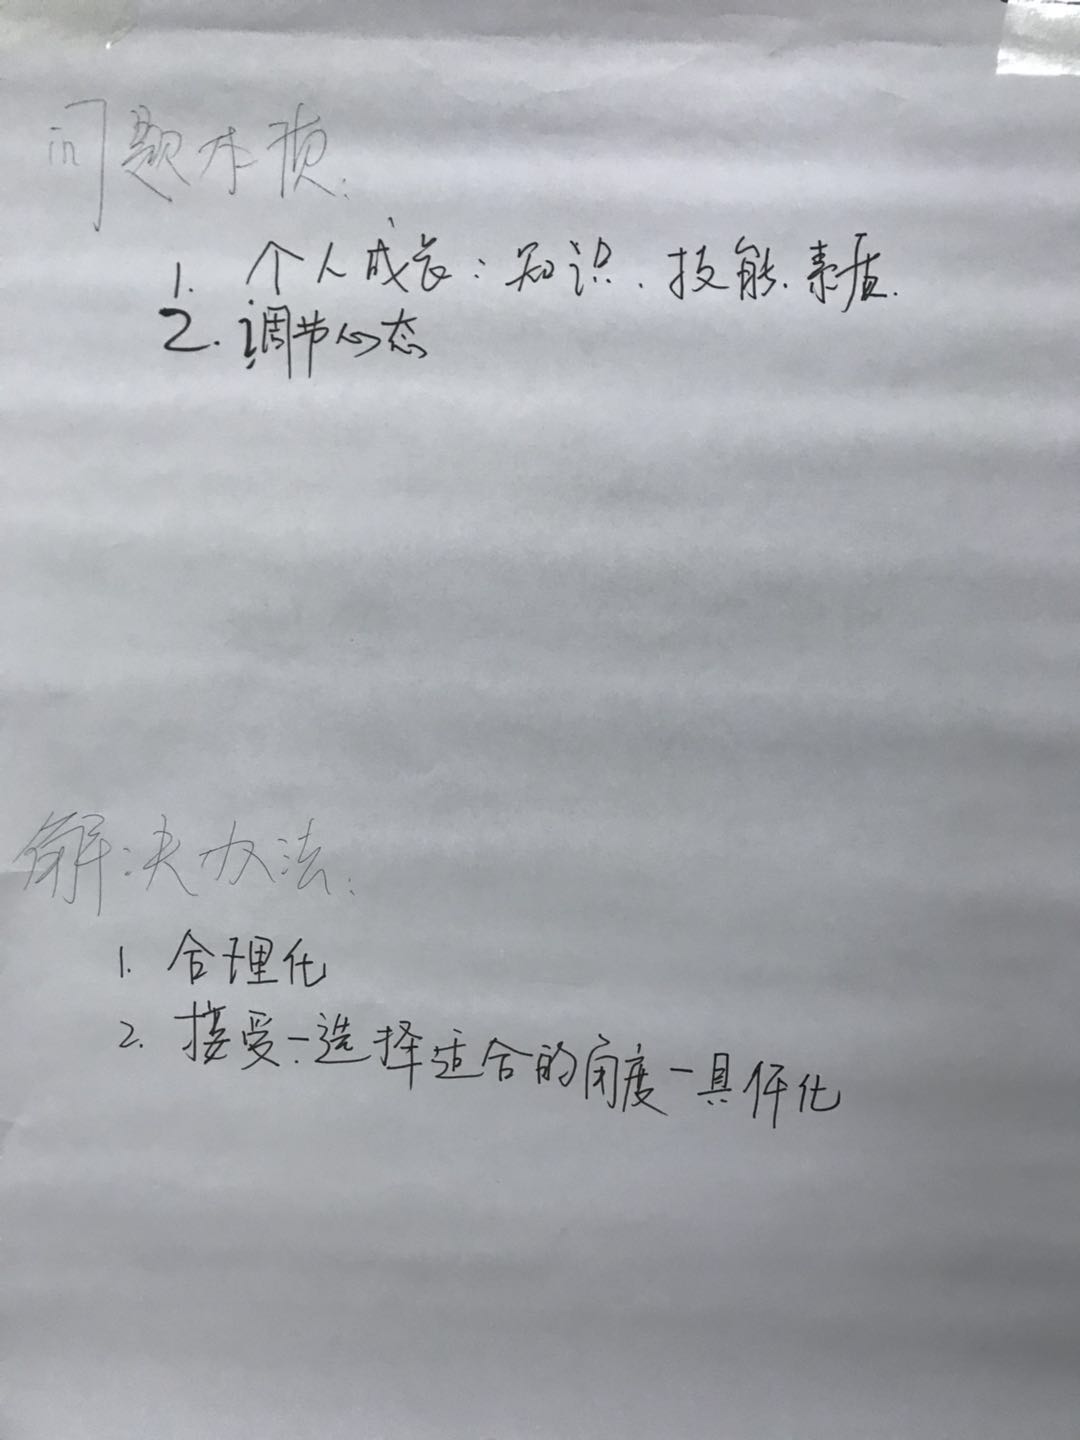 问题本质:
1. 个人成长:知识、技能、素质.
2. 调节心态
解决办法:
1. 合理化
2. 接受-选择适合的角度-具体化